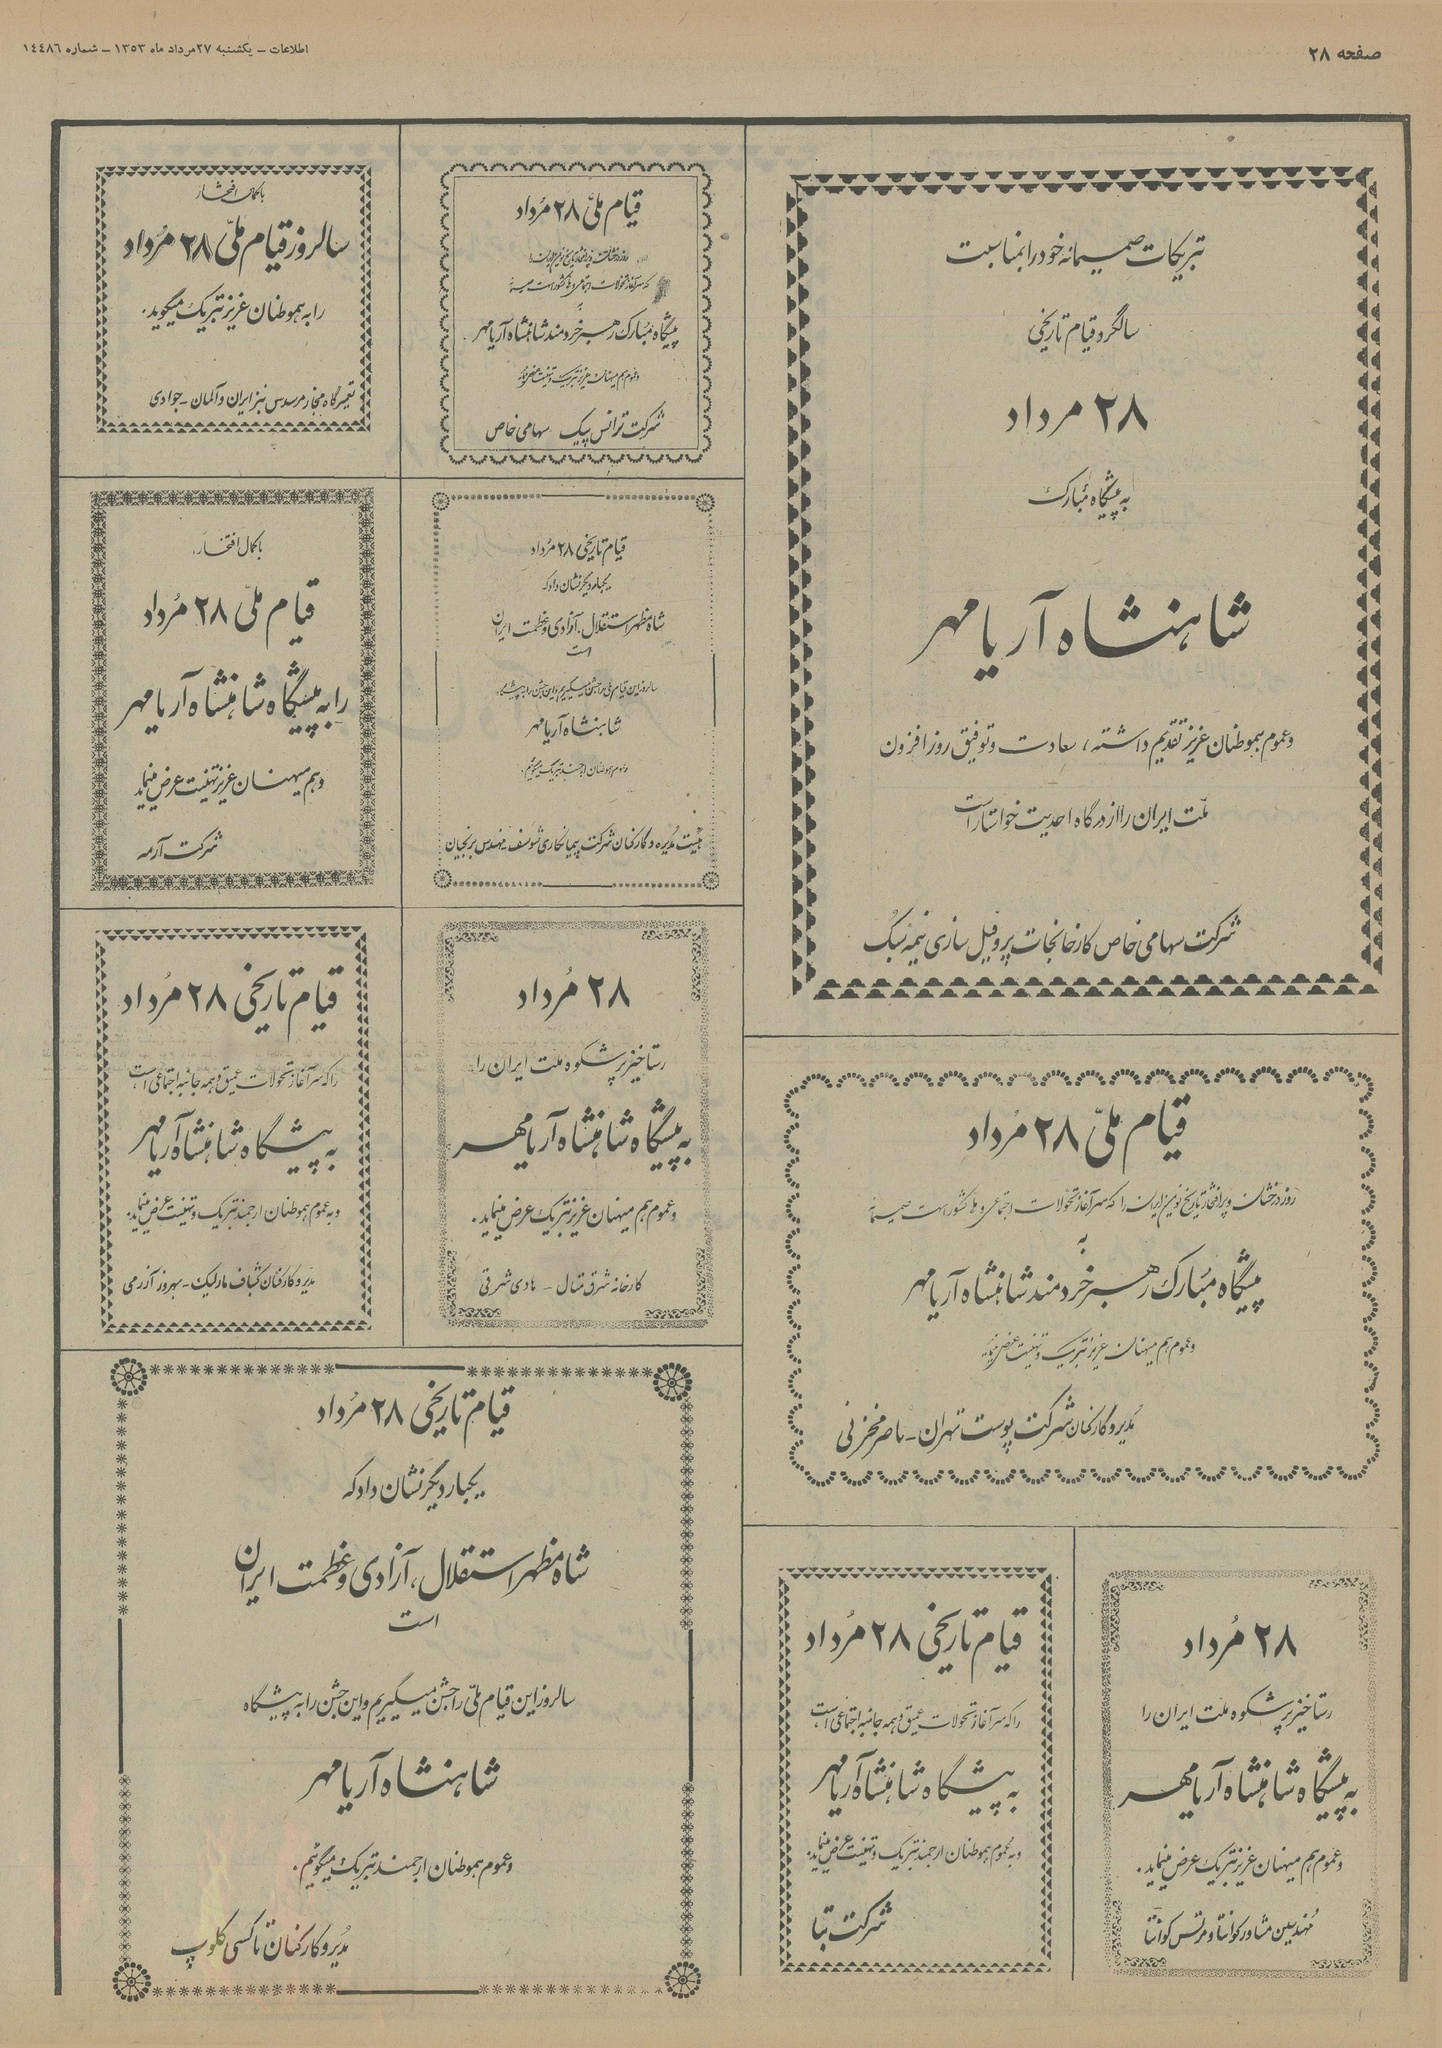 صفحه ۲۸
اطلاعات – یکشنبه ۲۷ مرداد ماه ۱۳۵۳ – شماره ۱۴۴۸۶
تبریکات صمیمانه خود را بمناسبت
سالگرد قیام تاریخی
۲۸ مرداد
به پیشگاه مبارک
شاهنشاه آریامهر
و عموم هموطنان عزیز تقدیم داشته ، سعادت و توفیق روز افزون
ملت ایران را از درگاه احدیت خواستار است
شرکت سهامی خاص کارخانجات پروفیل سازی نیمه سبک
قیام ملی ۲۸ مرداد
روز درخشان و پر افتخار تاریخ نوین ایران را که سرآغاز تحولات اجتماعی و ملی کشور است صمیمانه
به
پیشگاه مبارک رهبر خردمند شاهنشاه آریامهر
و عموم هم میهنان عزیز تبریک و تهنیت عرض مینماید
مدیر و کارکنان شرکت پوست تهران – ناصر مخزنی
۲۸ مرداد
رستاخیز پرشکوه ملت ایران را
به پیشگاه شاهنشاه آریامهر
و عموم هم میهنان عزیز تبریک عرض مینماید .
مهندسین مشاور کوانتا و مرتس کوانتا
قیام تاریخی ۲۸ مرداد
را که سرآغاز تحولات عمیق و همه جانبه اجتماعی است
به پیشگاه شاهنشاه آریامهر
و به عموم هموطنان ارجمند تبریک و تهنیت عرض مینماید.
شرکت تبا
قیام ملی ۲۸ مرداد
روز درخشان و پر افتخار تاریخ نوین ایران را
که سرآغاز تحولات اجتماعی و ملی کشور است صمیمانه
به
پیشگاه مبارک رهبر خردمند شاهنشاه آریامهر
و عموم هم میهنان عزیز تبریک و تهنیت عرض مینماید
شرکت ترانس پیک سهامی خاص
باکمال افتخار
سالروز قیام ملی ۲۸ مرداد
را به هموطنان عزیز تبریک میگوید.
تعمیرگاه مجاز مرسدس بنز ایران و آلمان – جوادی
قیام تاریخی ۲۸ مرداد
یکبار دیگر نشان داد که
شاه مظهر استقلال ، آزادی و عظمت ایران
است
سالروز این قیام ملی را جشن میگیریم و این جشن را به پیشگاه
شاهنشاه آریامهر
و عموم هموطنان ارجمند تبریک میگوئیم .
هیئت مدیره و کارکنان شرکت پیمانکاری شوسف – مهندس برنجیان
باکمال افتخار
قیام ملی ۲۸ مرداد
را به پیشگاه شاهنشاه آریامهر
و هم میهنان عزیز تهنیت عرض مینماید
شرکت آرمه
۲۸ مرداد
رستاخیز پرشکوه ملت ایران را
به پیشگاه شاهنشاه آریامهر
و عموم هم میهنان عزیز تبریک عرض مینماید .
کارخانه شرق متال – هادی شرقی
قیام تاریخی ۲۸ مرداد
را که سرآغاز تحولات عمیق و همه جانبه اجتماعی است
به پیشگاه شاهنشاه آریامهر
و به عموم هموطنان ارجمند تبریک و تهنیت عرض مینماید.
مدیر و کارکنان کشباف مارلیک – بهروز آذرمی
قیام تاریخی ۲۸ مرداد
یکبار دیگر نشان داد که
شاه مظهر استقلال ، آزادی و عظمت ایران
است
سالروز این قیام ملی را جشن میگیریم و این جشن را به پیشگاه
شاهنشاه آریامهر
و عموم هموطنان ارجمند تبریک میگوئیم .
مدیر و کارکنان تاکسی کلوپ